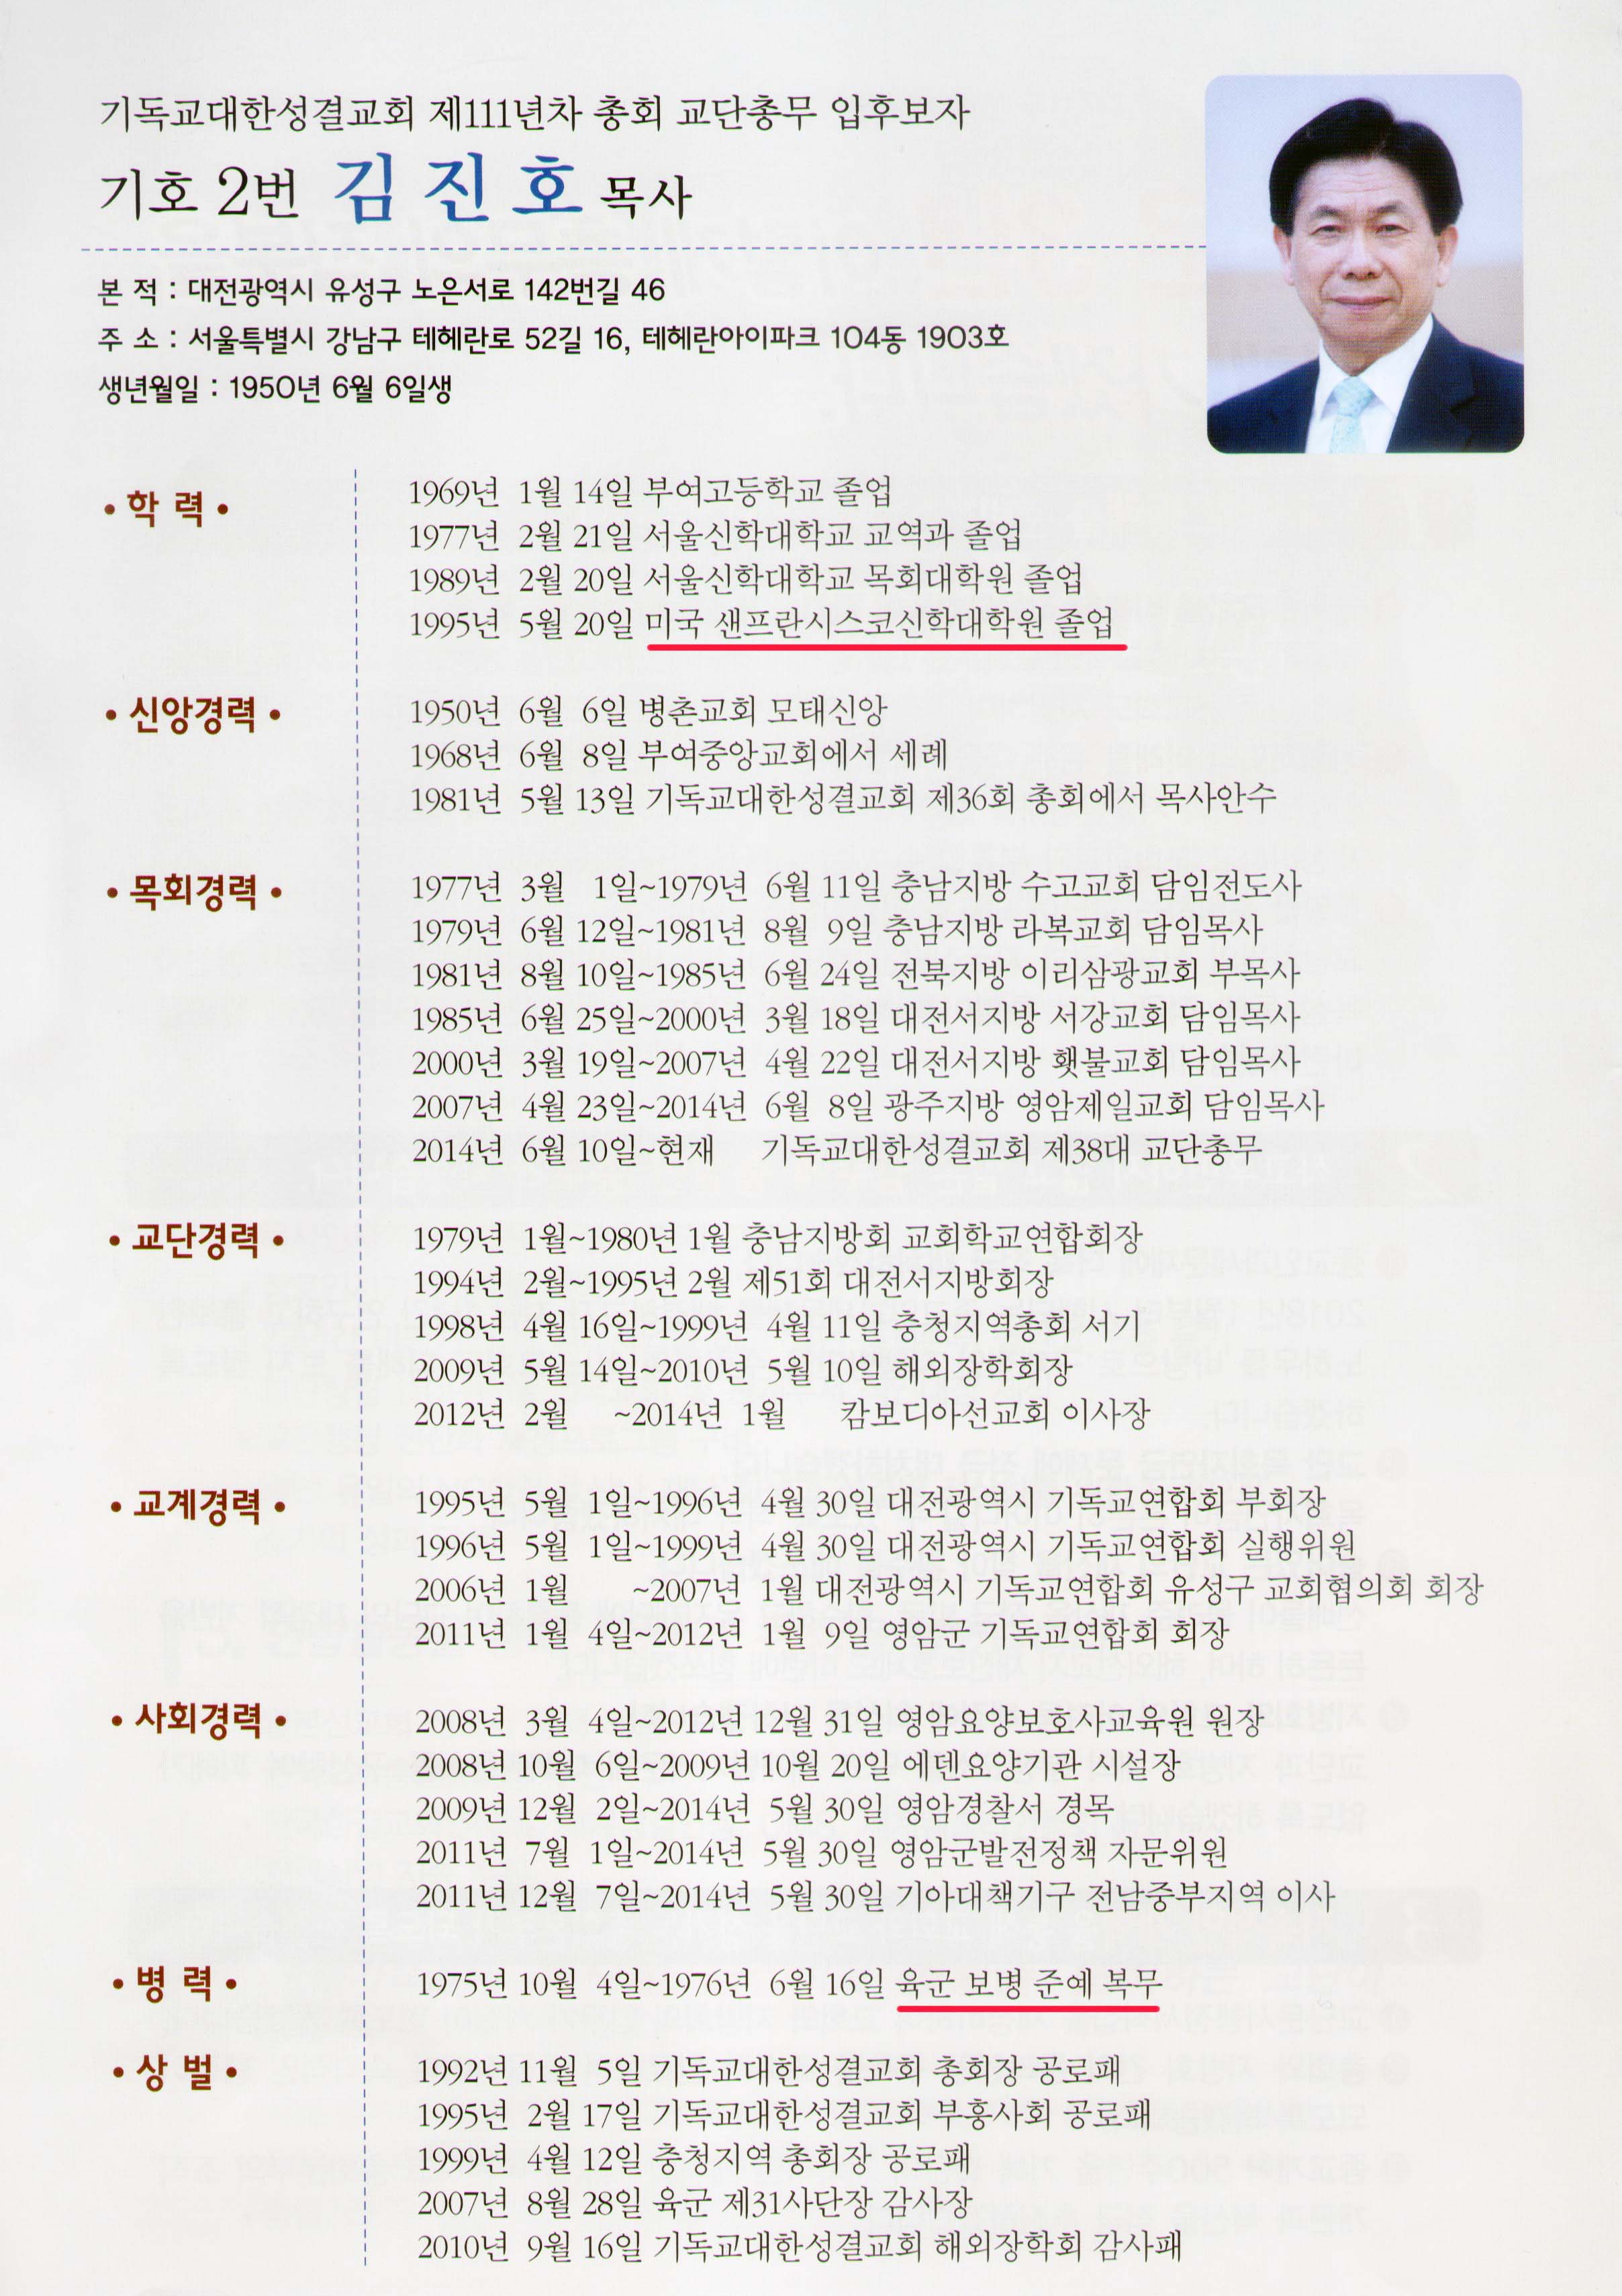 기독교대한성결교회 제111년차 총회 교단총무 입후보자
기호 2번 김진호 목사
본 적 : 대전광역시 유성구 노은서로 142번길 46
주 소 : 서울특별시 강남구 테헤란로 52길 16, 테헤란아이파크 104동 1903호
생년월일 : 1950년 6월 6일생
• 학 력 •
1969년 1월 14일 부여고등학교 졸업
1977년 2월 21일 서울신학대학교 교역과 졸업
1989년 2월 20일 서울신학대학교 목회대학원 졸업
1995년 5월 20일 미국 샌프란시스코신학대학원 졸업
• 신앙경력 •
1950년 6월 6일 병촌교회 모태신앙
1968년 6월 8일 부여중앙교회에서 세례
1981년 5월 13일 기독교대한성결교회 제36회 총회에서 목사안수
• 목회경력 •
1977년 3월 1일~1979년 6월 11일 충남지방 수고교회 담임전도사
1979년 6월 12일~1981년 8월 9일 충남지방 라복교회 담임목사
1981년 8월 10일~1985년 6월 24일 전북지방 이리삼광교회 부목사
1985년 6월 25일~2000년 3월 18일 대전서지방 서강교회 담임목사
2000년 3월 19일~2007년 4월 22일 대전서지방 횃불교회 담임목사
2007년 4월 23일~2014년 6월 8일 광주지방 영암제일교회 담임목사
2014년 6월 10일~현재 기독교대한성결교회 제38대 교단총무
• 교단경력 •
1979년 1월~1980년 1월 충남지방회 교회학교연합회장
1994년 2월~1995년 2월 제51회 대전서지방회장
1998년 4월 16일~1999년 4월 11일 충청지역총회 서기
2009년 5월 14일~2010년 5월 10일 해외장학회장
2012년 2월 ~2014년 1월 캄보디아선교회 이사장
• 교계경력 •
1995년 5월 1일~1996년 4월 30일 대전광역시 기독교연합회 부회장
1996년 5월 1일~1999년 4월 30일 대전광역시 기독교연합회 실행위원
2006년 1월 ~2007년 1월 대전광역시 기독교연합회 유성구 교회협의회 회장
2011년 1월 4일~2012년 1월 9일 영암군 기독교연합회 회장
• 사회경력 •
2008년 3월 4일~2012년 12월 31일 영암요양보호사교육원 원장
2008년 10월 6일~2009년 10월 20일 에덴요양기관 시설장
2009년 12월 2일~2014년 5월 30일 영암경찰서 경목
2011년 7월 1일~2014년 5월 30일 영암군발전정책 자문위원
2011년 12월 7일~2014년 5월 30일 기아대책기구 전남중부지역 이사
• 병 력 •
1975년 10월 4일~1976년 6월 16일 육군 보병 준예 복무
• 상 벌 •
1992년 11월 5일 기독교대한성결교회 총회장 공로패
1995년 2월 17일 기독교대한성결교회 부흥사회 공로패
1999년 4월 12일 충청지역 총회장 공로패
2007년 8월 28일 육군 제31사단장 감사장
2010년 9월 16일 기독교대한성결교회 해외장학회 감사패